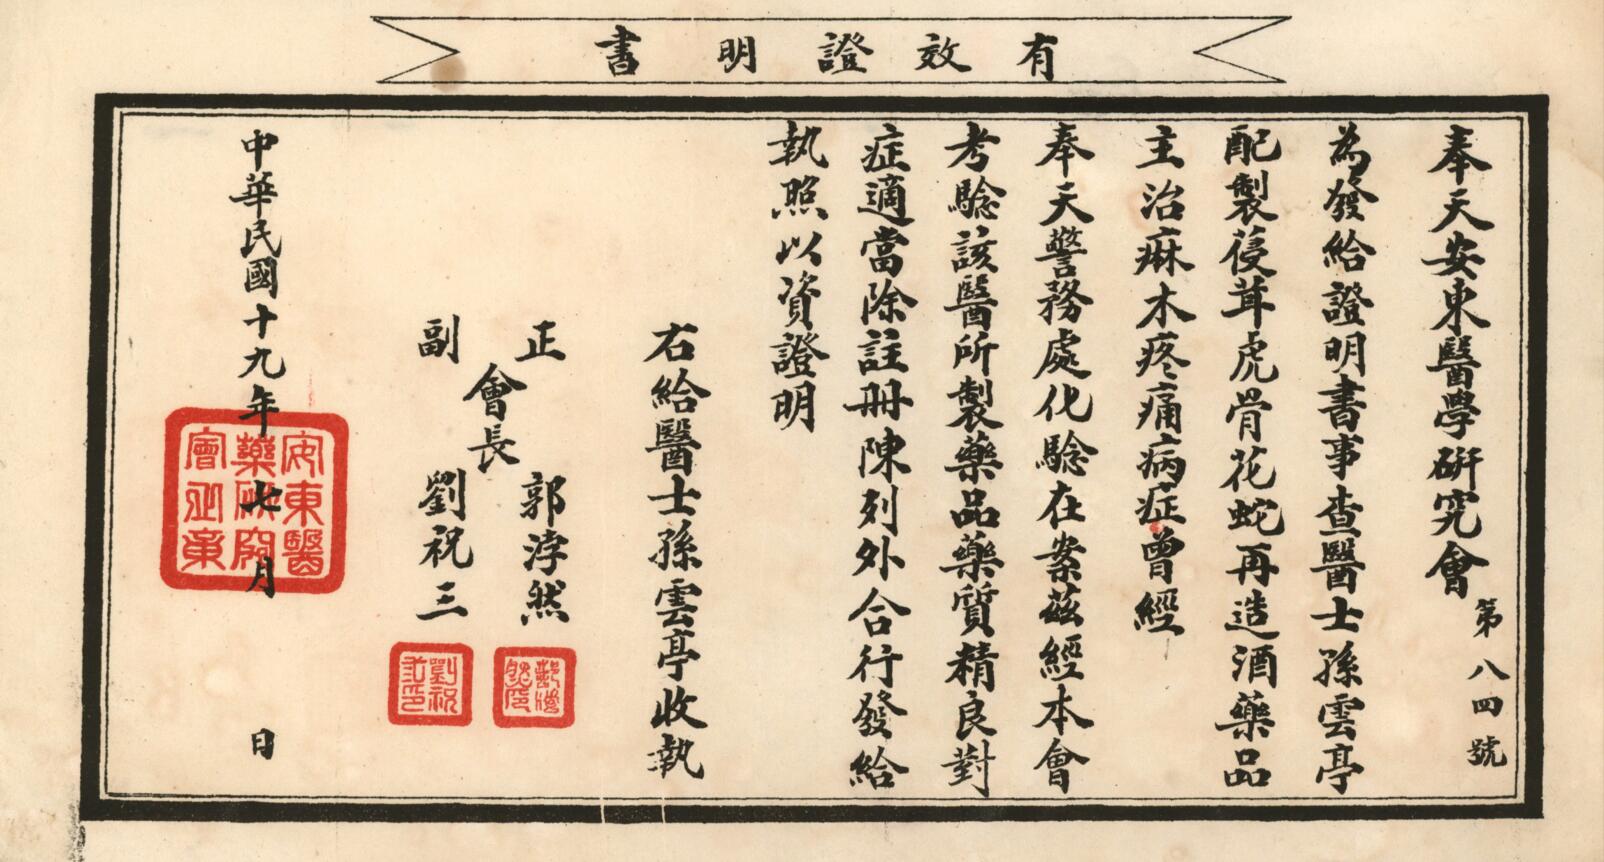 有效證明書
奉天安東醫學研究會
第八四號
為發給證明書事查醫士孫雲亭
配製葠茸虎骨花蛇再造酒藥品
主治麻木疼痛病症曾經
奉天警務處化驗在案茲經本會
考驗該醫所製藥品藥質精良對
症適當除註冊陳列外合行發給
執照以資證明
右給醫士孫雲亭收執
正
副
會長
郭浡然
劉祝三
中華民國十九年七月
日
安東醫
藥研究
會
劉祝
三印